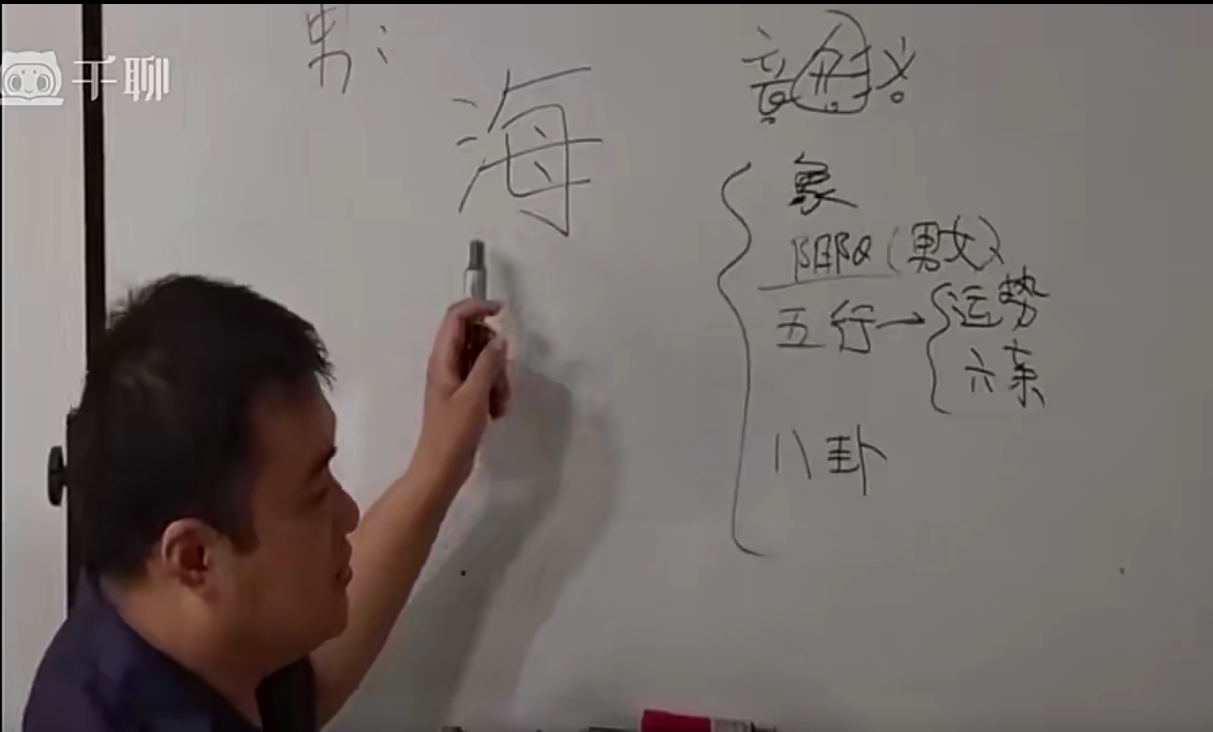 千聊
男:
海
音形义
象
阴阳(男女)
五行→运势
六亲
八卦